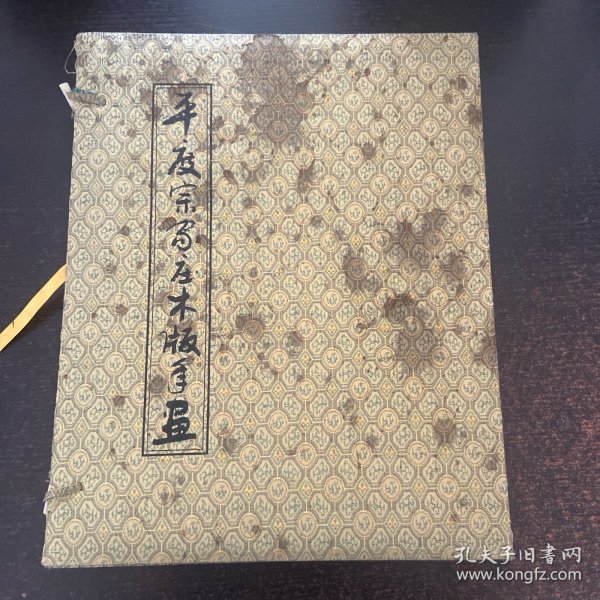 平度宗家庄木版年画
孔夫子旧書网
www.kongfz.com